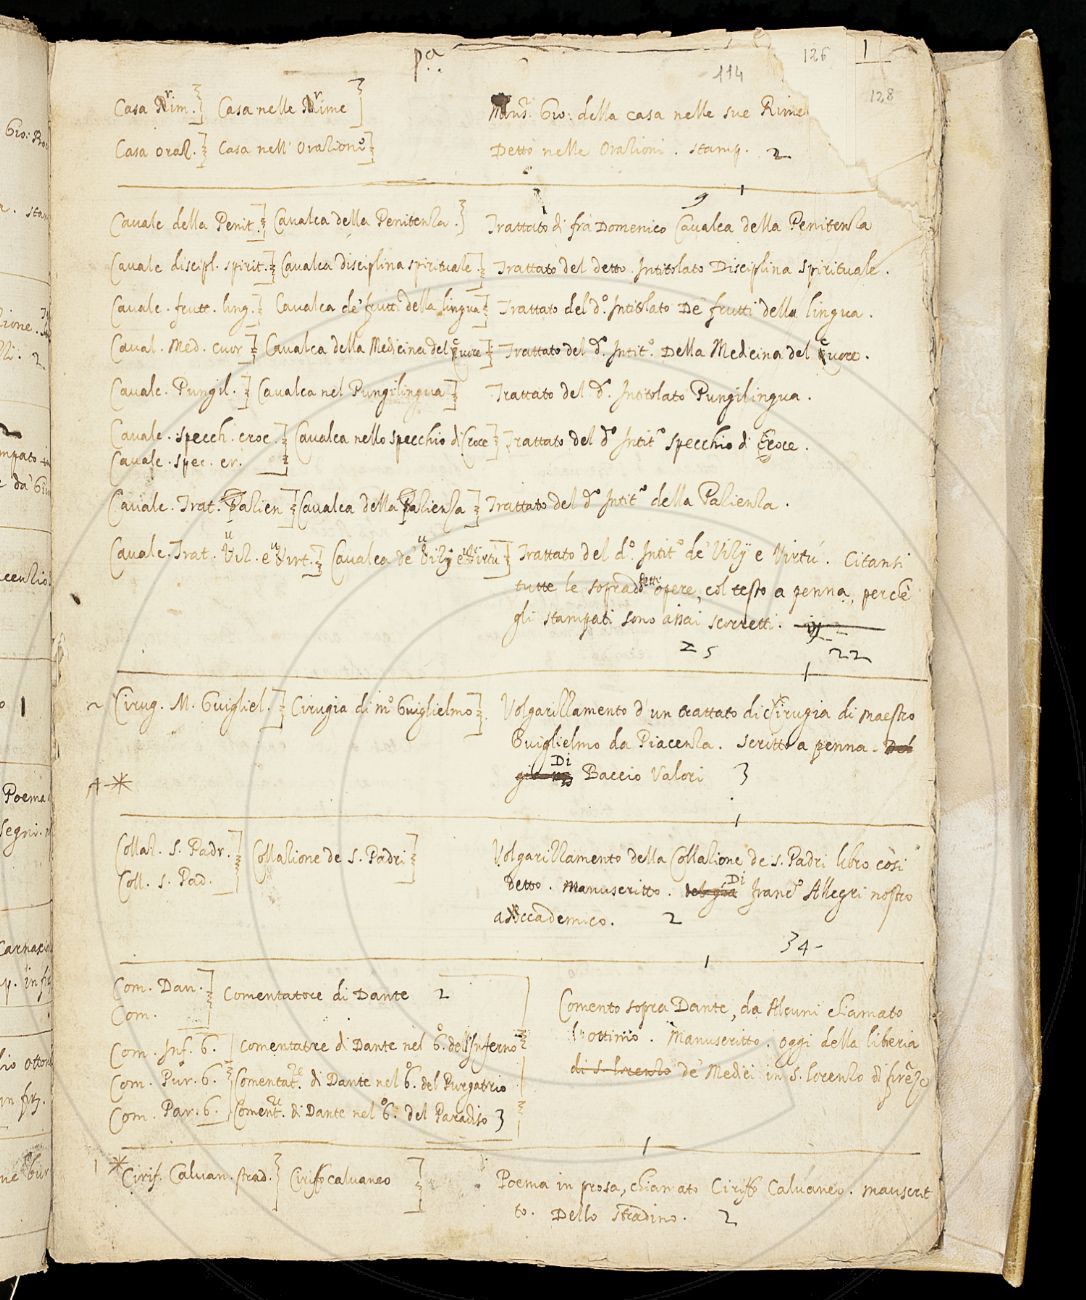 pa.
114
126
128
1
Casa Rim.] Casa nelle Rime] Mons. Gio: della casa nelle sue Rime
Casa oraz.] Casa nell' Orazione] Detto nelle Orazioni. stamp. 2
Cavalc. della Penit.] Cavalca della Penitenza.] Trattato di fra Domenico Cavalca della Penitenza
Cavalc. discipl. spirit.] Cavalca disciplina spirituale.] Trattato del detto. Intitolato Disciplina spirituale.
Cavalc. frutt. ling.] Cavalca de' frutti della lingua] Trattato del do. Intitolato De' frutti della lingua.
Caval. Med. cuor] Cavalca della Medicina del cuore] Trattato del do. Intito. Della Medicina del cuore.
Cavalc. Pungil.] Cavalca nel Pungilingua] Trattato del do. Intitolato Pungilingua.
Cavalc. specch. croc.] Cavalca nello specchio di Croce] Trattato del do. Intito. specchio di Croce.
Cavalc. spec. cr.
Cavalc. Trat. Pazien] Cavalca della Pazienza] Trattato del do. Intito. della Pazienza.
Cavalc. Trat. Viz. e Virt.] Cavalca de' Vizij e Virtù] Trattato del do. Intito. de' Vizij e Virtù. Citansi
tutte le sopradette opere, col testo a penna, perchè
gli stampati sono assai scorretti.
25 22
Cirug. M. Guigliel.] Cirugia di mo. Guiglielmo] Volgarizzamento d'un trattato di Cirugia di maestro
Guiglielmo da Piacenza. scritto a penna. Del
Di Baccio Valori 3
Collaz. S. Padr.] Collazione de S. Padri] Volgarizzamento della Collazione de' S. Padri libro così
Coll. S. Pad. detto. Manuscritto. Di Franco. Allegri nostro
Accademico. 2
34
Com. Dan.] Comentatore di Dante 2 Comento sopra Dante, da Alcuni chiamato
Com. l'ottimo. Manuscritto. oggi della libreria
Com. Inf. G. Comentatre di Dante nel G. del Inferno di S. Lorenzo de' Medici in S. Lorenzo di firẽze
Com. Pur. G. Comentat. di Dante nel G. del Purgatorio
Com. Par. G. Coment. di Dante nel G. del Paradiso 3
Cirif. Calvan. strad.] Ciriffo calvaneo] Poema in prosa, chiamato Ciriffo Calvaneo. manuscrit
to. Dello Stradino. 2